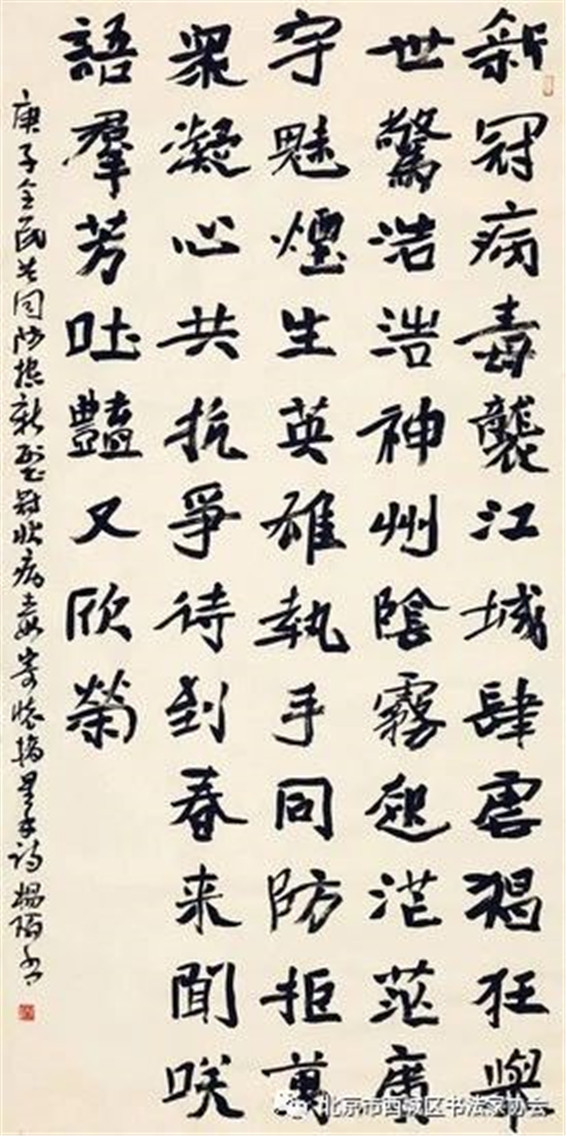 新冠病毒襲江城肆虐猖狂舉
世驚浩浩神州陰霧起茫茫廣
宇魅煙生英雄執手同防拒萬
衆凝心共抗爭待到春来聞咲
語羣芳吐豔又欣榮
庚子全民共同防控新型冠狀病毒寄懷
北京市西城区书法家协会